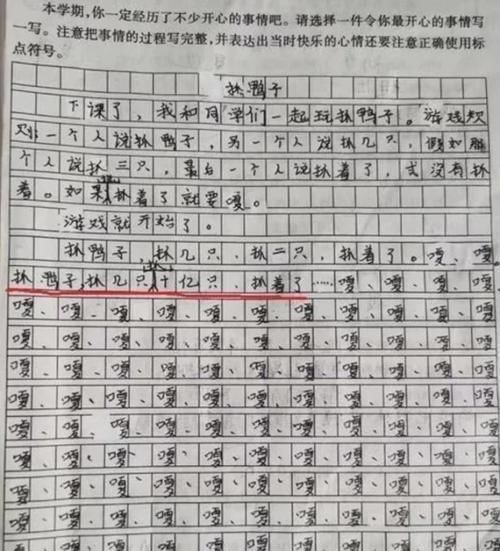 本学期,你一定经历了不少开心的事情吧。请选择一件令你最开心的事情写
一写。注意把事情的过程写完整,并表达出当时快乐的心情还要注意正确使用标
点符号。
抓鸭子
下课了,我和同学们一起玩抓鸭子。游戏规
则:一个人说抓鸭子,另一个人说抓几只,假如那
个人说抓三只,最后一个人说抓着了,或没有抓
着。如果抓着了就要嘎。
游戏就开始了。
抓鸭子,抓几只,抓二只,抓着了。嘎、嘎。
抓鸭子,抓几只,抓十亿只,抓着了……嘎、嘎、嘎、嘎、
嘎、嘎、嘎、嘎、嘎、嘎、嘎、嘎、嘎、嘎、
嘎、嘎、嘎、嘎、嘎、嘎、嘎、嘎、嘎、嘎、
嘎、嘎、嘎、嘎、嘎、嘎、嘎、嘎、嘎、嘎、
嘎、嘎、嘎、嘎、嘎、嘎、嘎、嘎、嘎、嘎、
嘎、嘎、嘎、嘎、嘎、嘎、嘎、嘎、嘎、嘎、
嘎、嘎、嘎、嘎、嘎、嘎、嘎、嘎、嘎、嘎、
嘎、嘎、嘎、嘎、嘎、嘎、嘎、嘎、嘎、嘎、
嘎、嘎、嘎、嘎、嘎、嘎、嘎、嘎、嘎、嘎、
嘎、嘎、嘎、嘎、嘎、嘎、嘎、嘎、嘎、嘎、